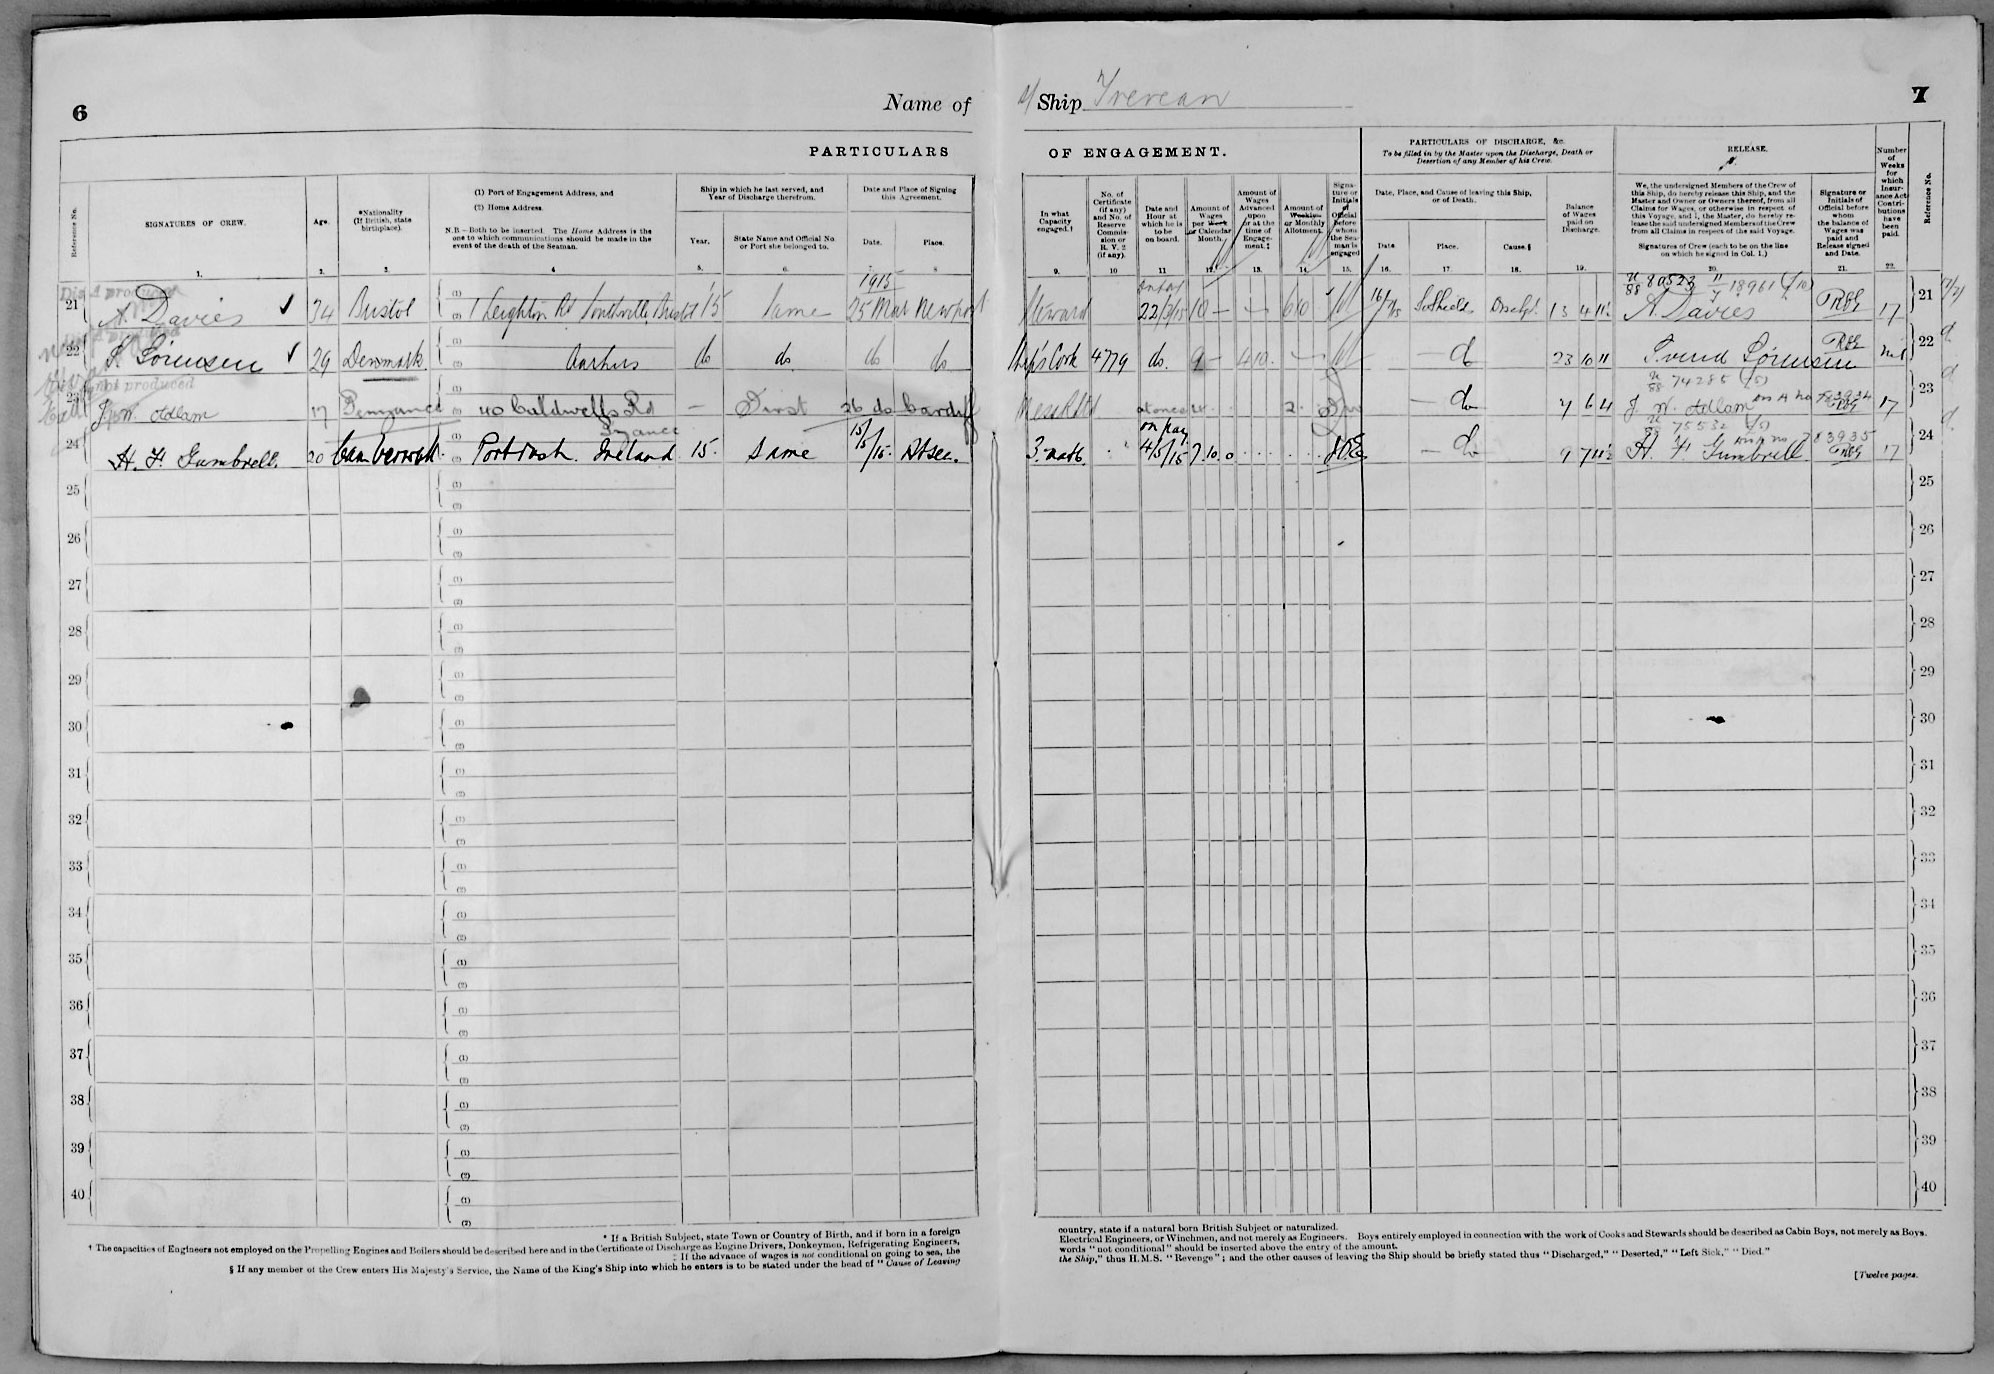 6
Name of
s/ Ship Trevean
7
PARTICULARS
OF ENGAGEMENT.
PARTICULARS OF DISCHARGE, &c.
To be filled in by the Master upon the Discharge, Death or
Desertion of any Member of his Crew.
RELEASE.
Reference No.
SIGNATURES OF CREW.
Age.
*Nationality
(If British, state
birthplace).
(1) Port of Engagement Address, and
(2) Home Address.
N.B.—Both to be inserted. The Home Address is the
one to which communications should be made in the
event of the death of the Seaman.
Ship in which he last served, and
Year of Discharge therefrom.
Year.
State Name and Official No.
or Port she belonged to.
Date and Place of Signing
this Agreement.
Date.
Place.
In what
Capacity
engaged.†
No. of
Certificate
(if any)
and No. of
Reserve
Commis-
sion or
R. V. 2
(if any).
Date and
Hour at
which he is
to be
on board.
Amount of
Wages
per Week
or Calendar
Month.
Amount of
Wages
Advanced
upon
or at the
time of
Engage-
ment.‡
Amount of
Weekly
or Monthly
Allotment.
Signa-
ture or
Initials
of
Official
before
whom
the Sea-
man is
engaged
Date, Place, and Cause of leaving this Ship,
or of Death.
Date.
Place.
Cause.§
Balance
of Wages
paid on
Discharge.
We, the undersigned Members of the Crew of
this Ship, do hereby release this Ship, and the
Master and Owner or Owners thereof, from all
Claims for Wages, or otherwise in respect of
this Voyage, and I, the Master, do hereby re-
lease the said undersigned Members of the Crew
from all Claims in respect of the said Voyage.
Signatures of Crew (each to be on the line
on which he signed in Col. 1.)
Signature or
Initials of
Official before
whom
the balance of
Wages was
paid and
Release signed
and Date.
Number
of
Weeks
for
which
Insur-
ance Act
Contri-
butions
have
been
paid.
Reference No.
1. 2. 3. 4 5. 6. 7. 8 9. 10 11 12. 13. 14. 15. 16. 17. 18. 19. 20. 21. 22.
1915
80523 18961
21 A. Davies 34 Bristol 1 Leighton Rd Southville Bristol 15 Same 25 Mar Newport Steward 22/3/15 10 — 6 10 So Shields Dischgd. 13 4 A. Davies RBG 17 21
22 S Sörensen 29 Denmark Aarhus do do. do do Ship's Cook 4779 do. 9 — 4 10. — do 23 10 11 Svend Sörensen RBG nil 22
not produced
74285 (5)
23 J. W. Odlam 17 Penzance 40 Caldwells Rd — First 26 do Cardiff Mess Rm at once 2. — do 7 6 4 J. W. Odlam RBG 17 23
Pzance
on pay
75532 (5)
783935
24 H. F. Gumbrell. 20 Camberwell. Portrush. Ireland 15. Same 15/5/15. At sea. 3. mate. 4/5/15 7. 10. 0 — do 9 7 11½ H. F. Gumbrell. RBG 17 24
25 (1) (2) 25
26 (1) (2) 26
27 (1) (2) 27
28 (1) (2) 28
29 (1) (2) 29
30 (1) (2) 30
31 (1) (2) 31
32 (1) (2) 32
33 (1) (2) 33
34 (1) (2) 34
35 (1) (2) 35
36 (1) (2) 36
37 (1) (2) 37
38 (1) (2) 38
39 (1) (2) 39
40 (1) (2) 40
* If a British Subject, state Town or Country of Birth, and if born in a foreign
country, state if a natural born British Subject or naturalized.
† The capacities of Engineers not employed on the Propelling Engines and Boilers should be described here and in the Certificate of Discharge as Engine Drivers, Donkeymen, Refrigerating Engineers,
Electrical Engineers, or Winchmen, and not merely as Engineers. Boys entirely employed in connection with the work of Cooks and Stewards should be described as Cabin Boys, not merely as Boys.
‡ If the advance of wages is not conditional on going to sea, the
words "not conditional" should be inserted above the entry of the amount.
§ If any member of the Crew enters His Majesty's Service, the Name of the King's Ship into which he enters is to be stated under the head of "Cause of Leaving
the Ship," thus H.M.S. "Revenge"; and the other causes of leaving the Ship should be briefly stated thus "Discharged," "Deserted," "Left Sick," "Died."
[Twelve pages.